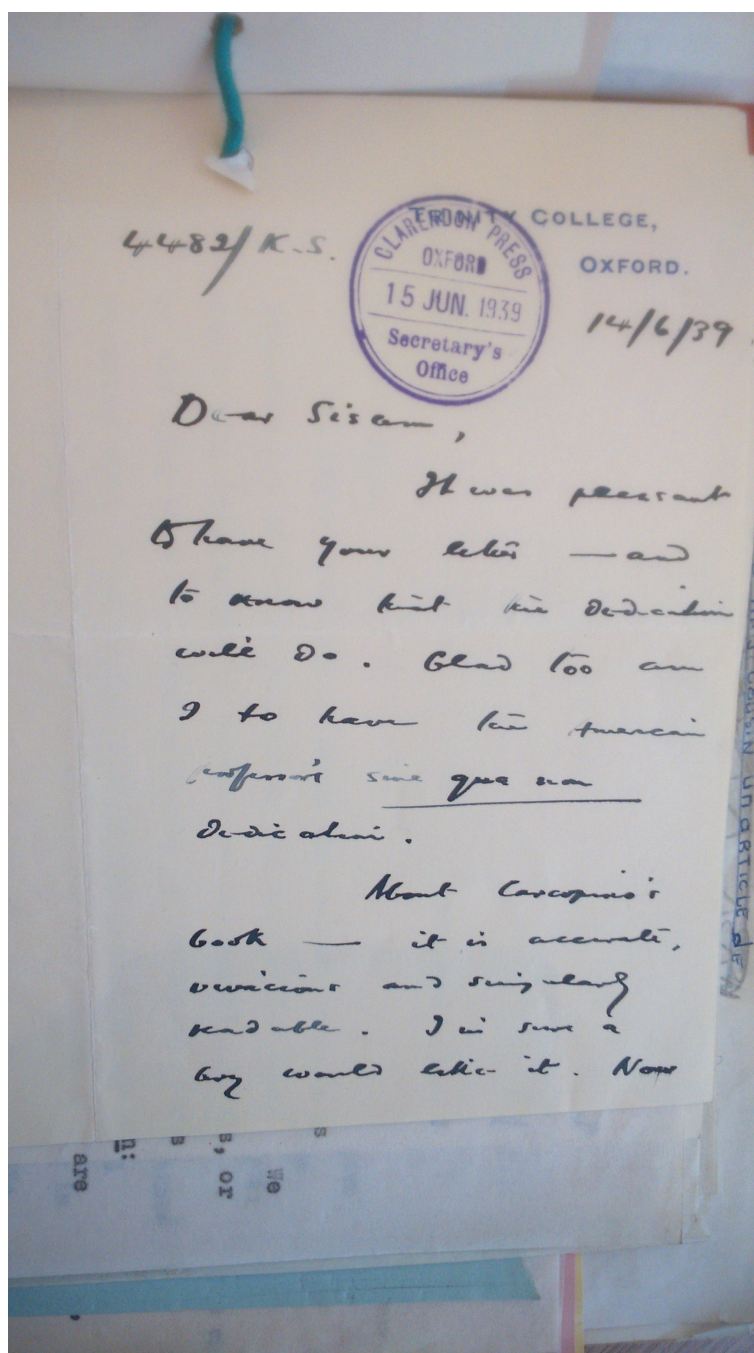 TRINITY COLLEGE,
OXFORD.
4482/K.S.
CLARENDON PRESS
OXFORD
15 JUN. 1939
Secretary's
Office
14/6/39.
Dear Sisam,
It was pleasant
to have your letter — and
to know that the Dedication
will do. Glad too am
I to have the American
professor's sine qua non
Dedication.
About Carcopino's
book — it is accurate,
vivacious and singularly
readable. I'm sure a
boy would like it. Now
UN ARTICLE DE
we
s, or
s
n:
are